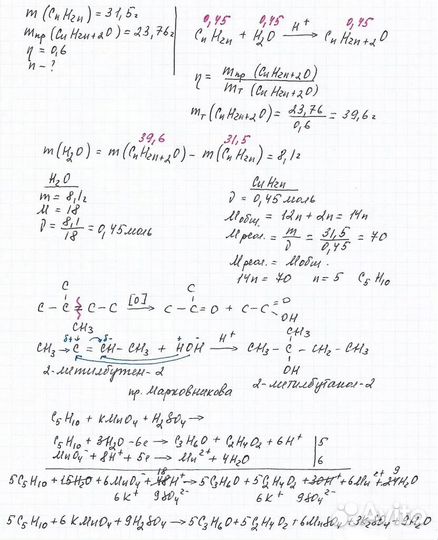 m(CnH2n) = 31,5г
mпр(CnH2n+2O) = 23,76г
η = 0,6
n - ?
0,45 0,45 0,45
CnH2n + H2O —H+→ CnH2n+2O
η = mпр(CnH2n+2O) / mт(CnH2n+2O)
mт(CnH2n+2O) = 23,76 / 0,6 = 39,6г
39,6 31,5
m(H2O) = m(CnH2n+2O) - m(CnH2n) = 8,1г
H2O
m = 8,1г
M = 18
ν = 8,1 / 18 = 0,45моль
CnH2n
ν = 0,45моль
Mобщ. = 12n + 2n = 14n
Mреал. = m / ν = 31,5 / 0,45 = 70
Mреал. = Mобщ.
14n = 70 n = 5 C5H10
C C
C - C = C - C —[O]→ C - C = O + C - C =O
CH3 OH
δ+ δ- CH3
CH3 → C = CH - CH3 + HOH —H+→ CH3 - C - CH2 - CH3
OH
2-метилбутен-2 пр. Марковникова 2-метилбутанол-2
C5H10 + KMnO4 + H2SO4 →
C5H10 + 3H2O - 6e → C3H6O + C2H4O2 + 6H+ | 5
MnO4- + 8H+ + 5e → Mn2+ + 4H2O | 6
18 9
5C5H10 + 15H2O + 6MnO4- + 48H+ = 5C3H6O + 5C2H4O2 + 30H+ + 6Mn2+ + 24H2O
6K+ 9SO42- 6K+ 9SO42-
5C5H10 + 6KMnO4 + 9H2SO4 → 5C3H6O + 5C2H4O2 + 6MnSO4 + 3K2SO4 + 9H2O
Avito